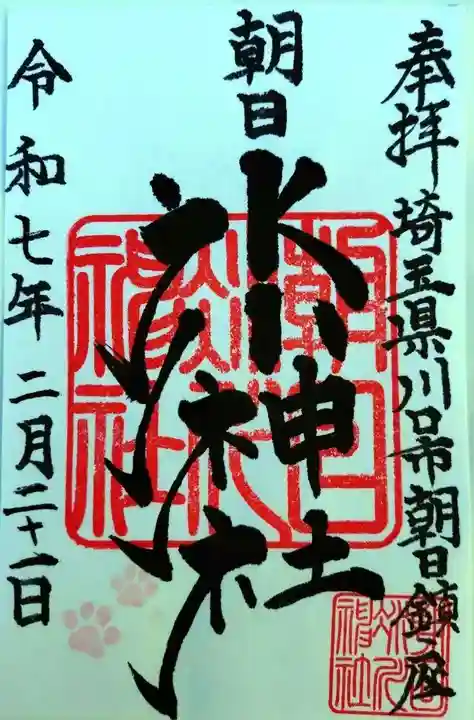 奉拝 埼玉県川口市朝日鎮座
朝日
氷川神社
令和七年二月二十一日
朝日氷川神社